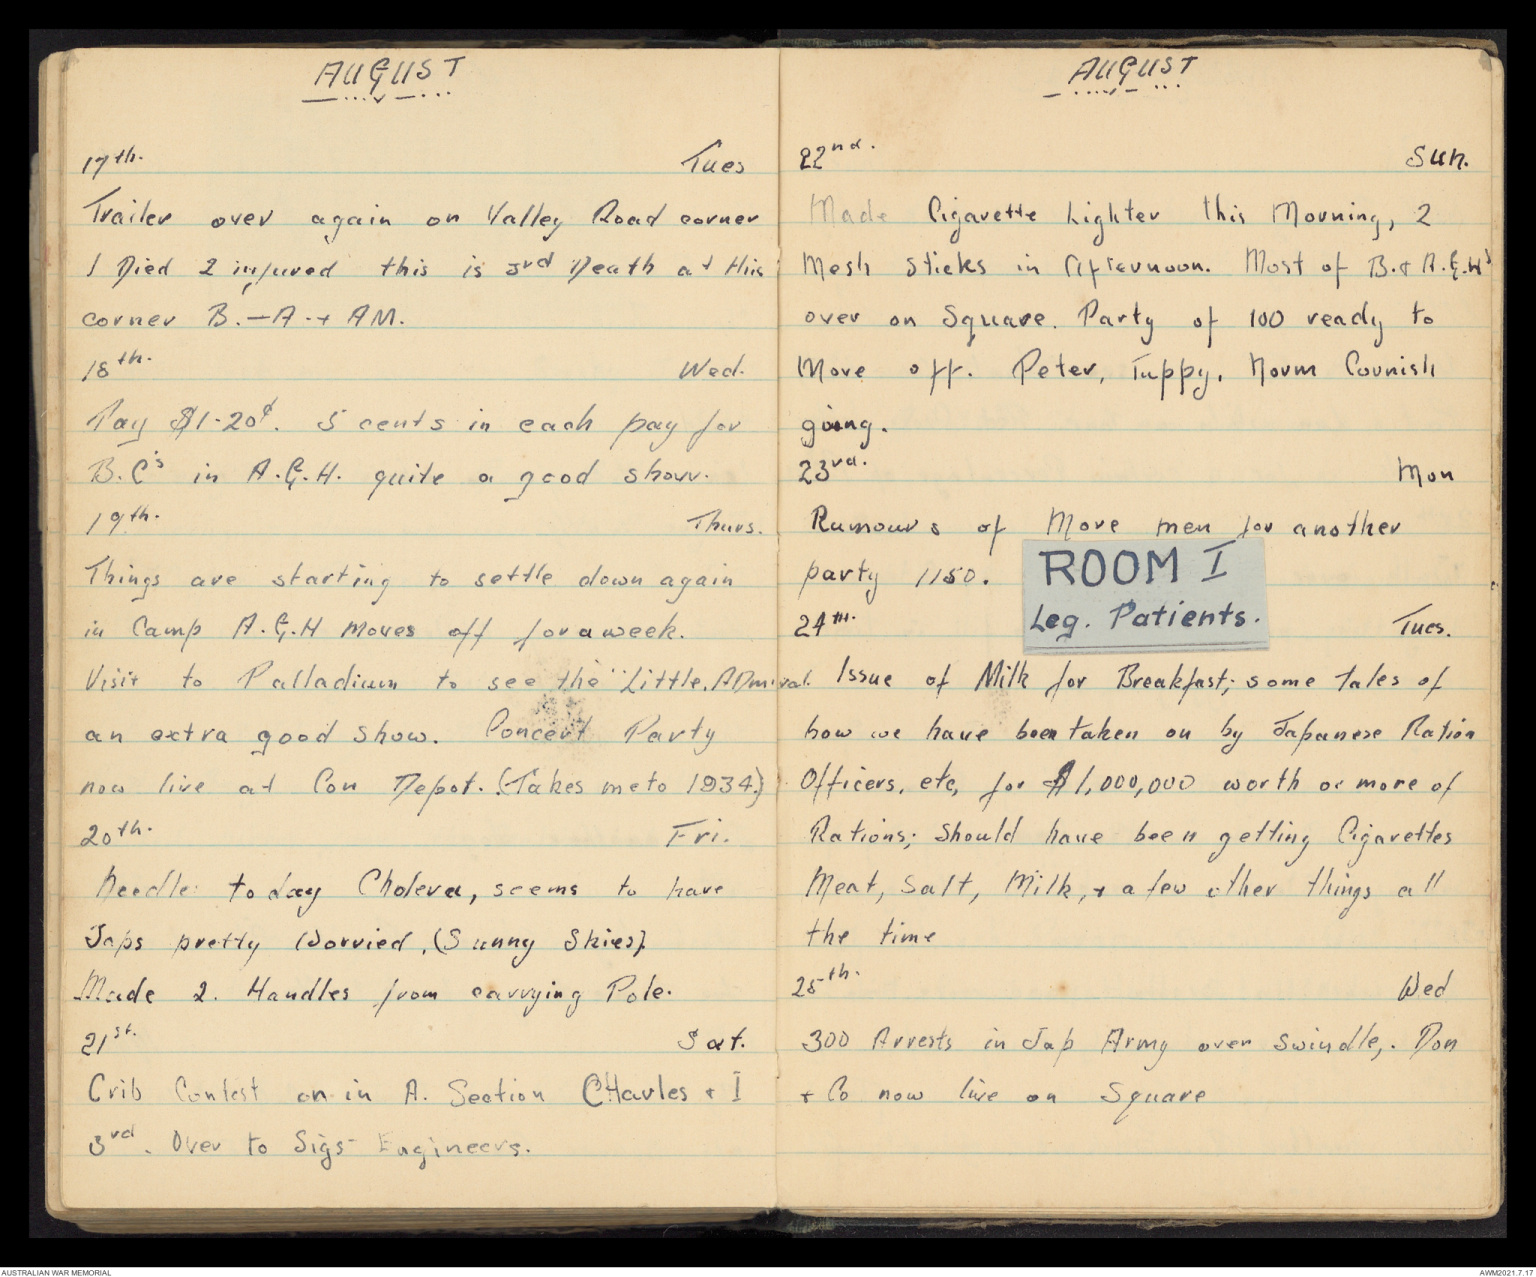 AUGUST
17th. Tues
Trailer over again on Valley Road corner
1 Died 2 injured this is 3rd Death at this
corner B. - A. + AM.
18th. Wed.
Pay $1.20¢. 5 cents in each pay for
B.C's in A.G.H. quite a good show.
19th. Thurs.
Things are starting to settle down again
in Camp A.G.H moves off for a week.
Visit to Palladium to see the "Little. ADmiral.
an extra good show. Concert Party
now live at Con Depot. (Takes me to 1934.)
20th. Fri.
Needle: today Cholera, seems to have
Japs pretty Worried, (Sunny Skies).
Made 2. Handles from carrying Pole.
21st. Sat.
Crib Contest on in A. Section CHarles + I
3rd. Over to Sigs- Engineers.
AUGUST
22nd. Sun.
Made Cigarette Lighter this Morning, 2
Mesh Sticks in Afternoon. Most of B. + A.G.H's
over on Square. Party of 100 ready to
Move off. Peter, Tuppy, Norm Cornish
going.
23rd. Mon
Rumours of More men for another
party 1150.
ROOM I
Leg. Patients.
24TH. Tues.
Issue of Milk for Breakfast; some tales of
how we have been taken on by Japanese Ration
Officers, etc, for $1,000,000 worth or more of
Rations; should have been getting Cigarettes
Meat, Salt, Milk, + a few other things all
the time
25th. Wed
300 Arrests in Jap Army over swindle,. Don
+ Co now live on Square
AUSTRALIAN WAR MEMORIAL
AWM2021.7.17